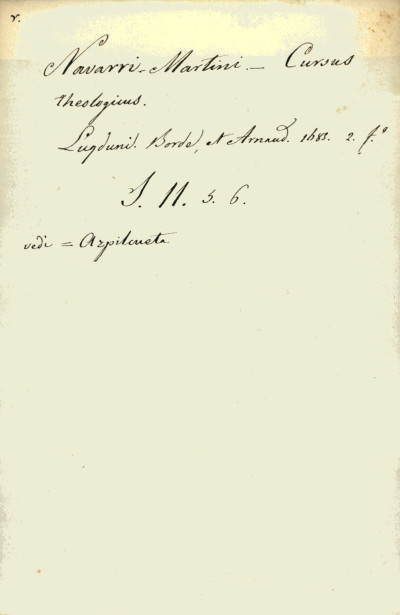 v.
Navarri-Martini - Cursus
theologicus.
Lugduni. Borde, et Arnaud. 1683. 2. f.º
S. 11. 5. 6.
vedi = Azpilcueta